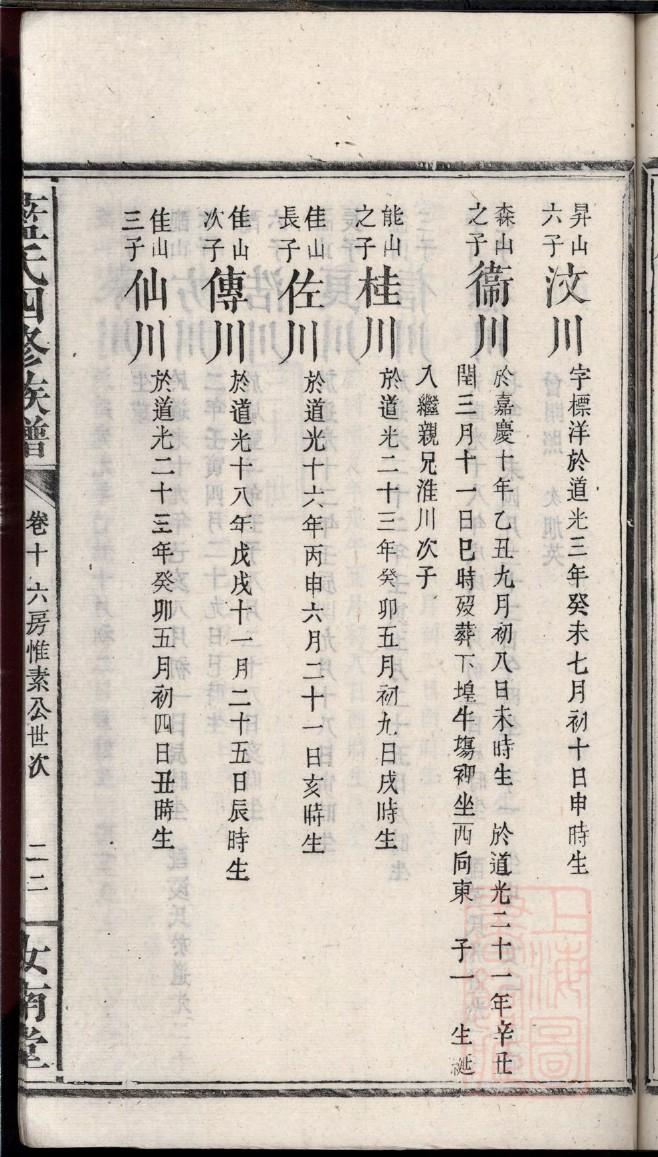 昇山六子汶川字標洋於道光三年癸未七月初十日申時生
森山之子衞川於嘉慶十年乙丑九月初八日未時生 於道光二十一年辛丑
閏三月十一日巳時歿葬下埠牛塲裡坐西向東 子一 生
入繼親兄淮川次子
能山之子桂川於道光二十三年癸卯五月初九日戌時生
佳山長子佐川於道光十六年丙申六月二十一日亥時生
佳山次子傳川於道光十八年戊戌十一月二十五日辰時生
佳山三子仙川於道光二十三年癸卯五月初四日丑時生
藍氏四修族譜 卷十六房惟素公世次 二三 汝南堂
上海圖書館藏